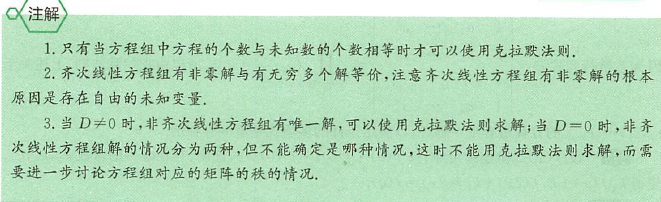 注解
1.只有当方程组中方程的个数与未知数的个数相等时才可以使用克拉默法则.
2.齐次线性方程组有非零解与有无穷多个解等价,注意齐次线性方程组有非零解的根本
原因是存在自由的未知变量.
3.当 D≠0 时,非齐次线性方程组有唯一解,可以使用克拉默法则求解;当 D=0 时,非齐
次线性方程组解的情况分为两种,但不能确定是哪种情况,这时不能用克拉默法则求解,而需
要进一步讨论方程组对应的矩阵的秩的情况.